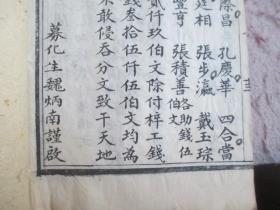 際昌 孔慶華 四合當
廷相 張步瀛 戴玉琮
豐亨 張積善 各助錢伍
伯文
貳仟玖伯文除付梓工錢
錢叁拾伍仟伍伯文均為
未敢侵吞分文致干天地
募化生魏炳南謹啟